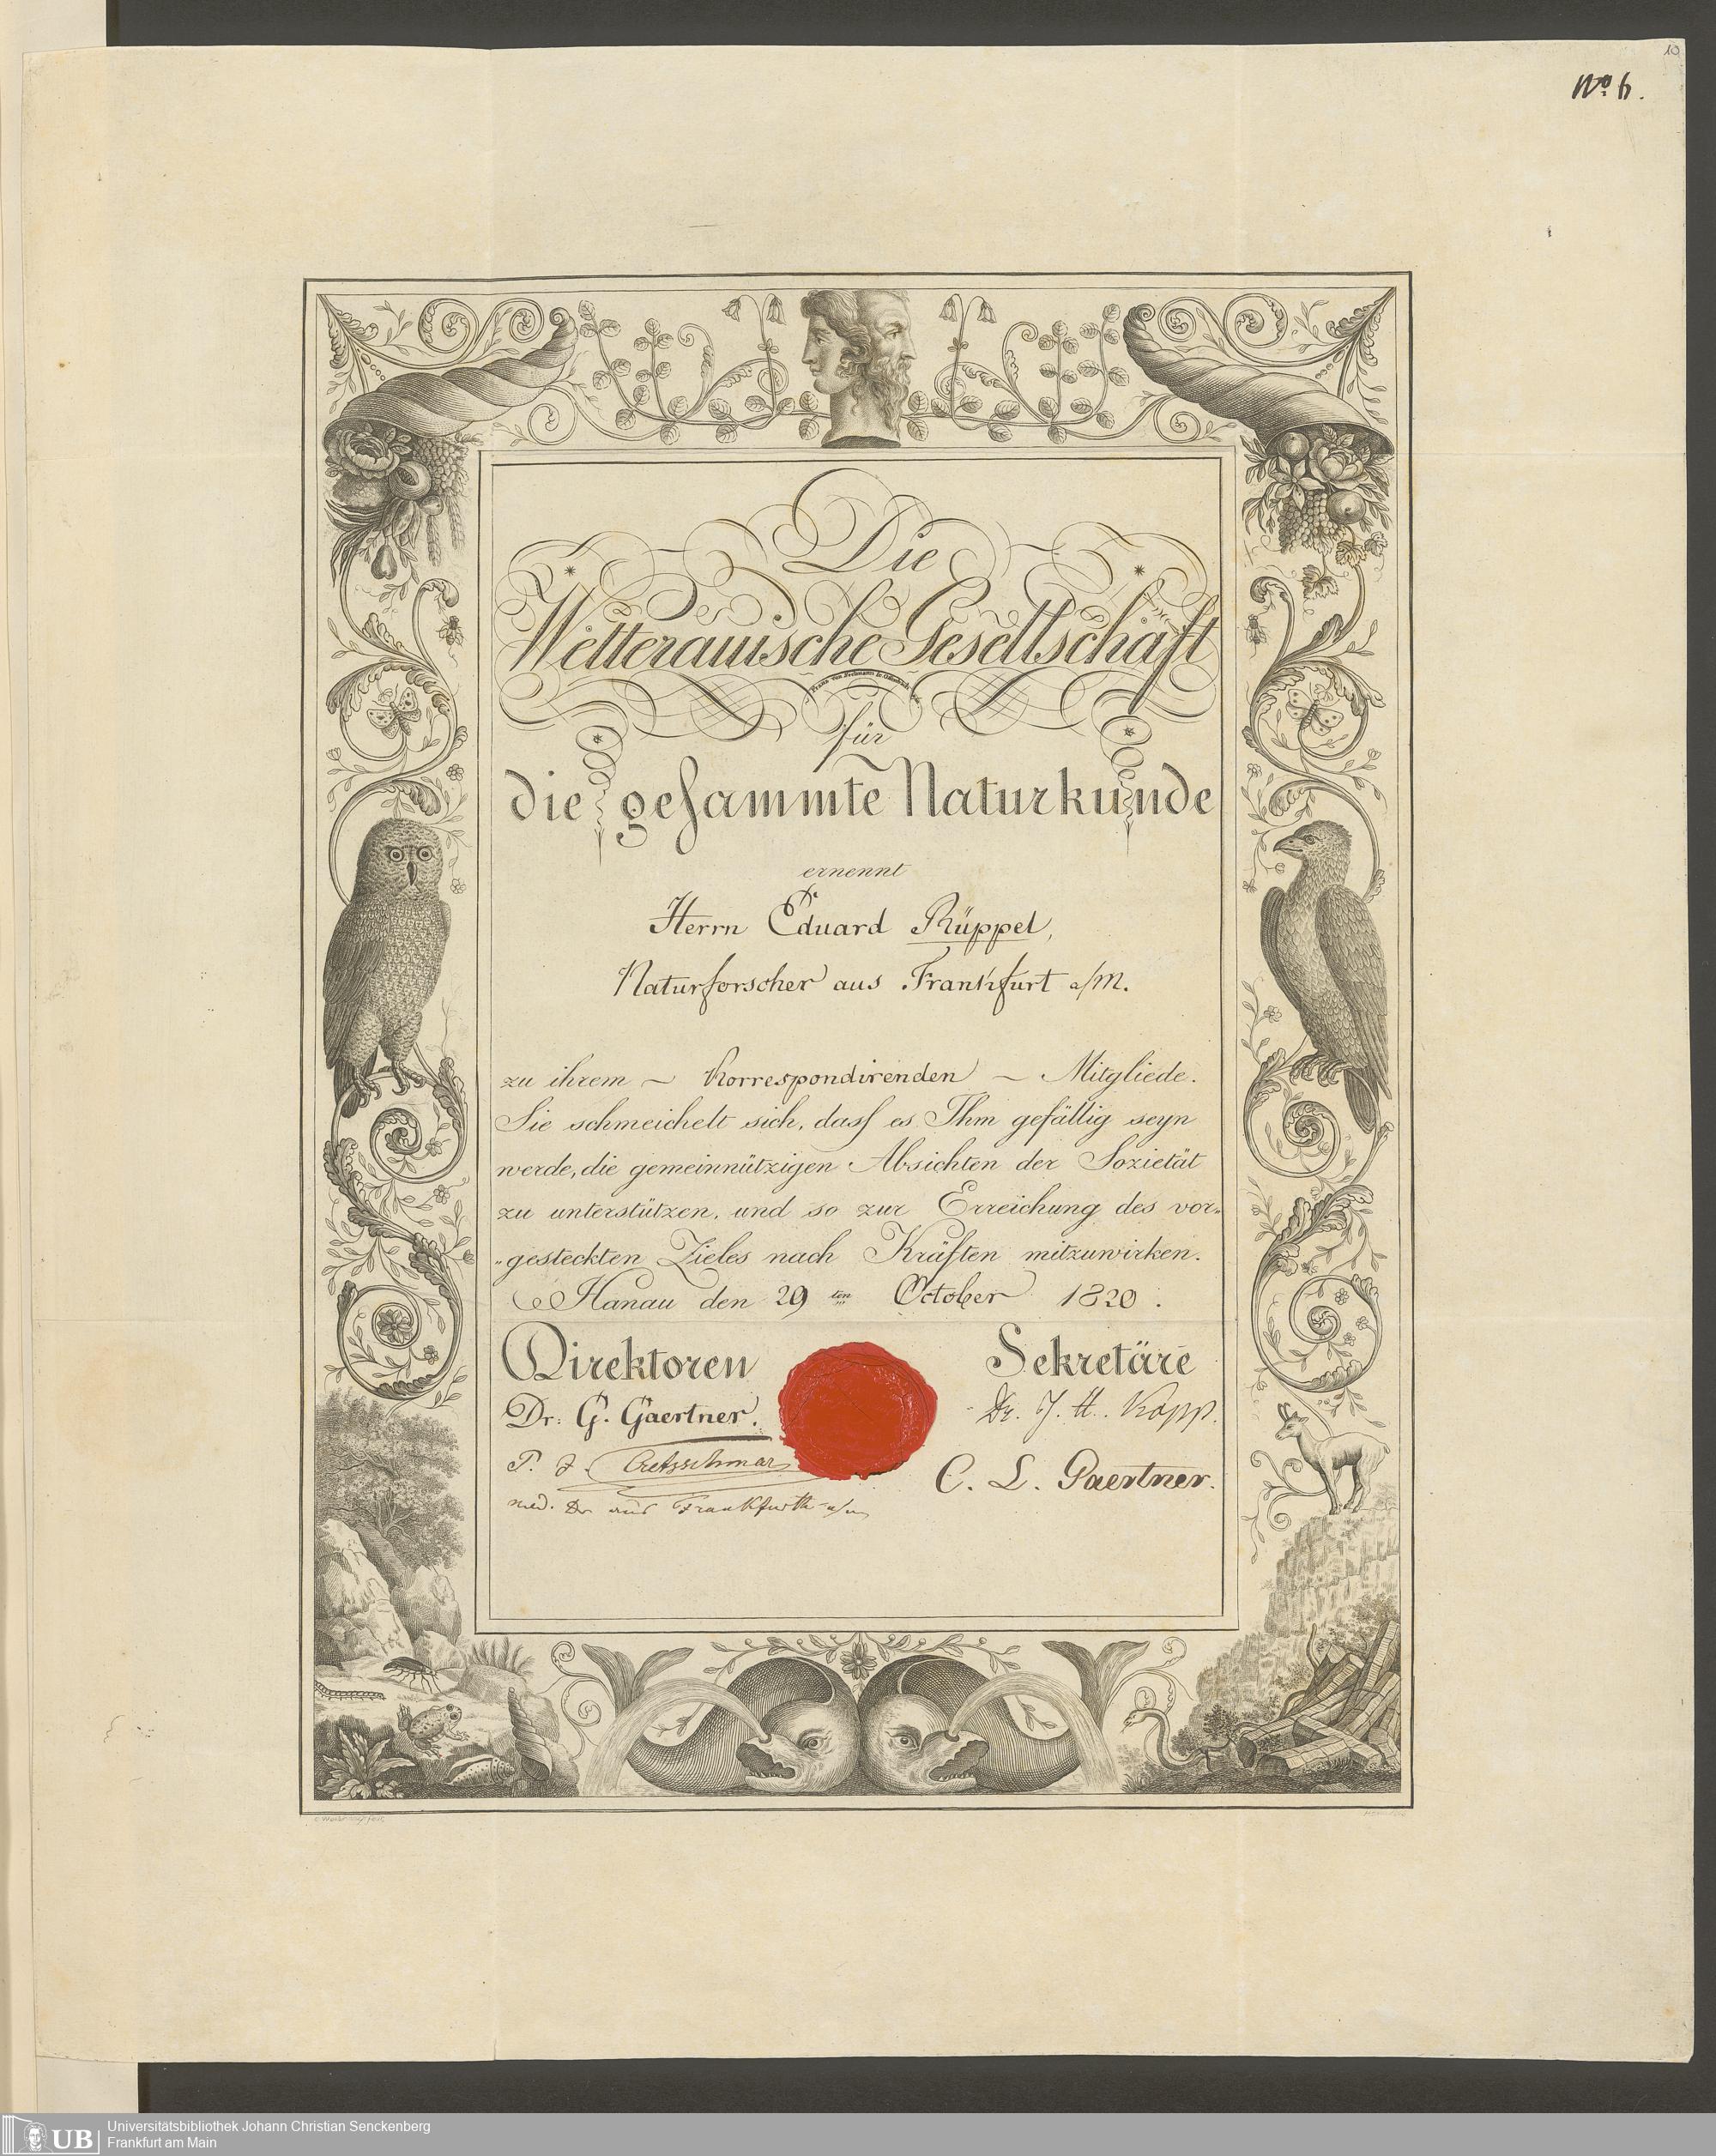 10
No 6.
Die
Wetterauische Gesellschaft
für
die gesammte Naturkunde
ernennt
Dr
Herrn Eduard Rüppel,
Naturforscher aus Frankfurt a/M.
zu ihrem ~ Korrespondirenden ~ Mitgliede.
Sie schmeichelt sich, dass es Ihm gefällig seyn
werde, die gemeinnützigen Absichten der Sozietät
zu unterstützen, und so zur Erreichung des vor„
„gesteckten Zieles nach Kräften mitzuwirken.
Hanau den 29 ten October 1820.
Direktoren Sekretäre
Dr: G. Gaertner. Dr. J. H. Kopp.
P. J. Cretzschmar
C. L. Gaertner.
med. Dr aus Frankfurth a/m
UB Universitätsbibliothek Johann Christian Senckenberg
Frankfurt am Main